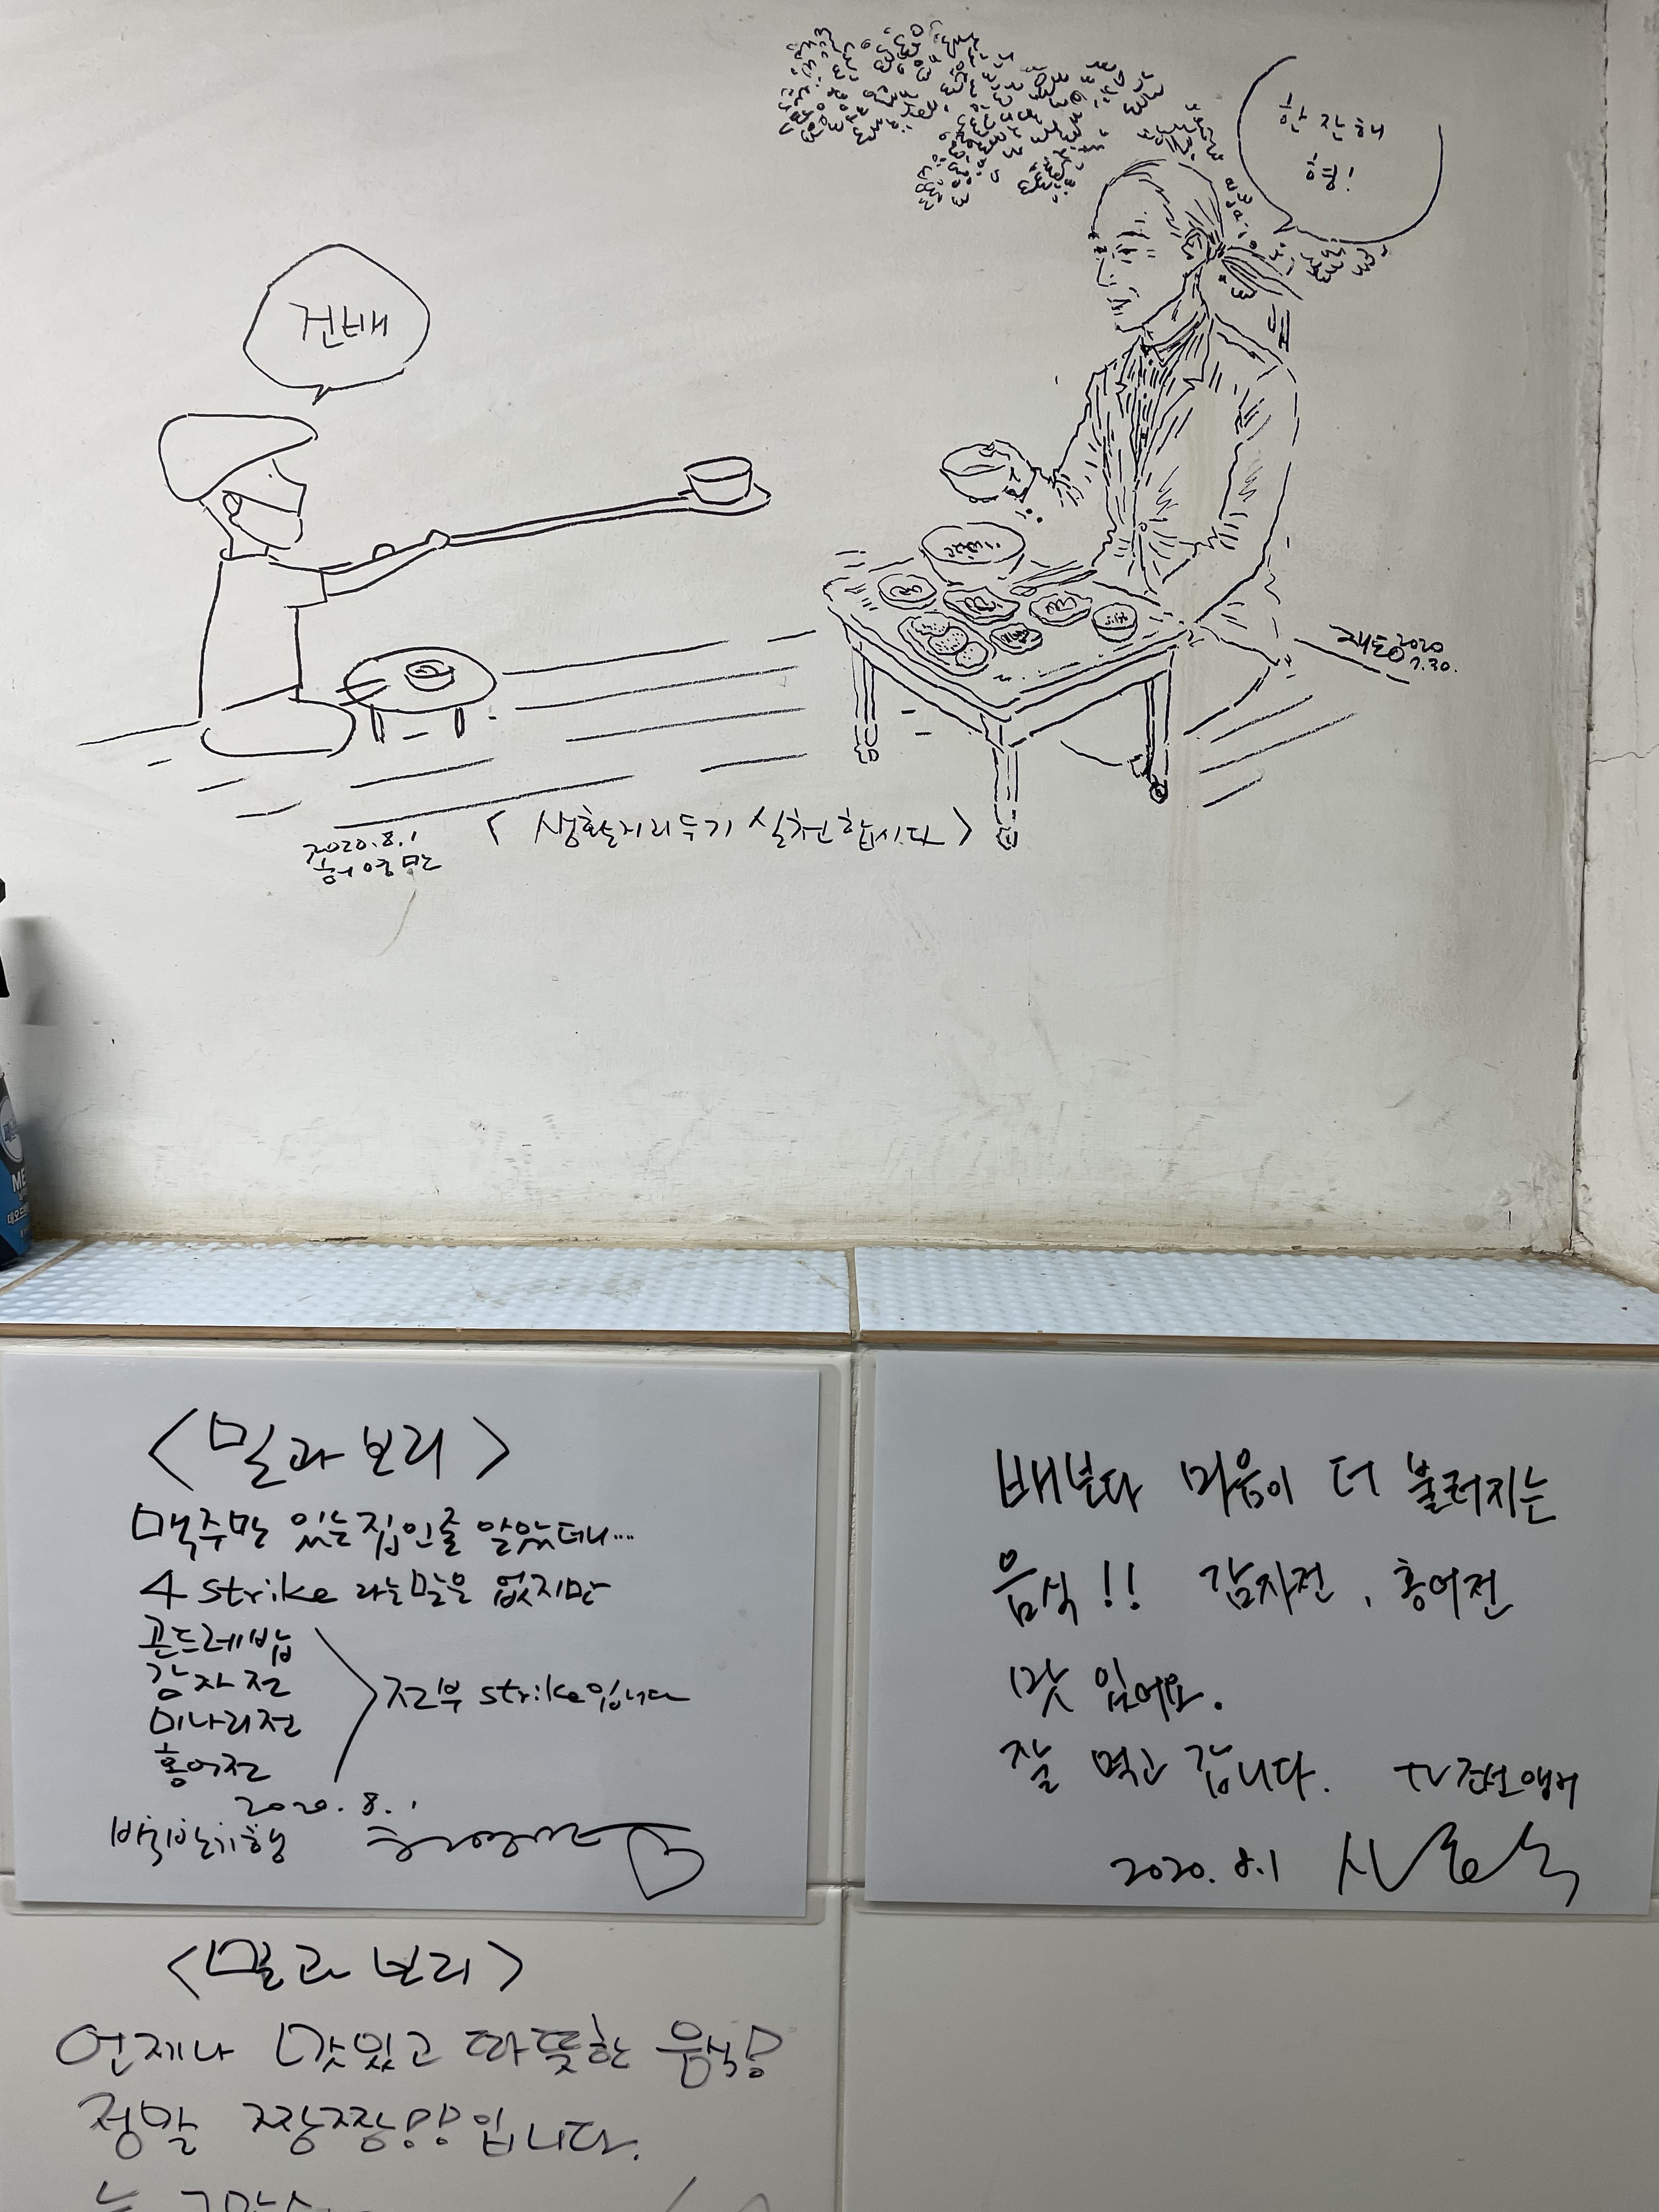 한 잔 해
흥흥!
건배
재동 2020
7.30.
< 생활거리두기 실천합시다 >
2020.8.1
허영만
ME
<밀과 보리>
맥주만 있는 집인줄 알았더니....
4 strike 라는말은 없지만
곤드레밥
감자전
미나리전
홍어전
전부 strike입니다
2020. 8. 1
백반기행
허영만
배보다 마음이 더 불러지는
음식!! 감자전, 홍어전
맛 있어요.
잘 먹고 갑니다. TV조선
2020. 8.1
<밀과 보리>
언제나 맛있고 따뜻한 음식!
정말 짱짱!! 입니다.